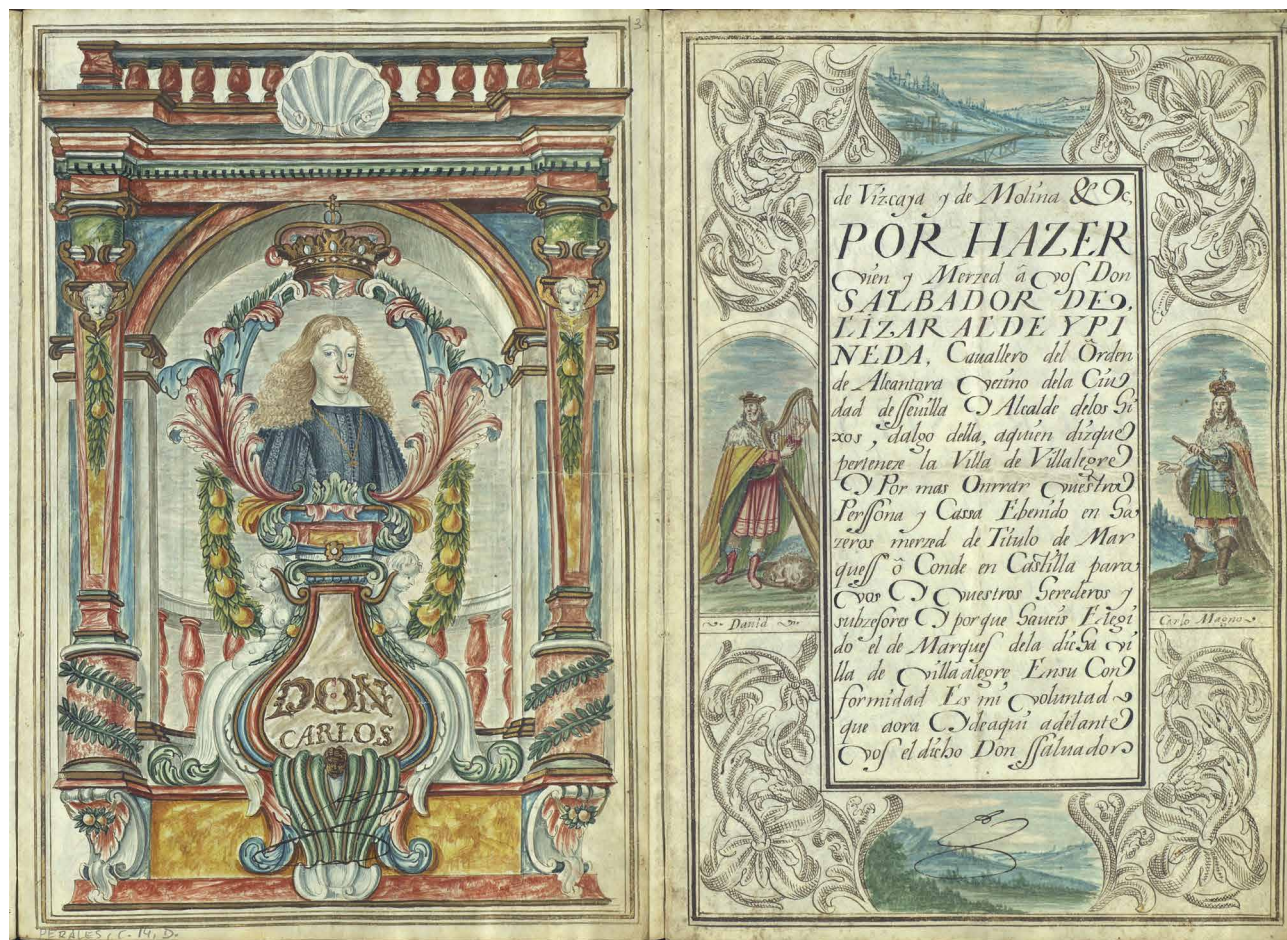 3
DON
CARLOS
PERALES, C. 14, D.
de Vizcaya y de Molina &c,
POR HAZER
vien y Merzed â vos Don
SALBADOR DE
LIZARALDE YPI
NEDA, Cauallero del Orden
de Alcantara vezino dela Ciu
dad desseuilla y Alcalde delos Hi
xos, dalgo della, aquien dizque
perteneze la Villa de Villalegre
y Por mas Onrrar vuestra
Perssona y Cassa E henido en Ha
zeros merzed de Titulo de Mar
quess ô Conde en Castilla para
vos y vuestros Herederos y
subzesores y porque Haueis Elegi
do el de Marques dela dicha vi
lla de villa alegre Ensu Con
formidad Es mi voluntad
que aora y deaqui adelante
vos el dicho Don ssaluador
David
Carlo Magno